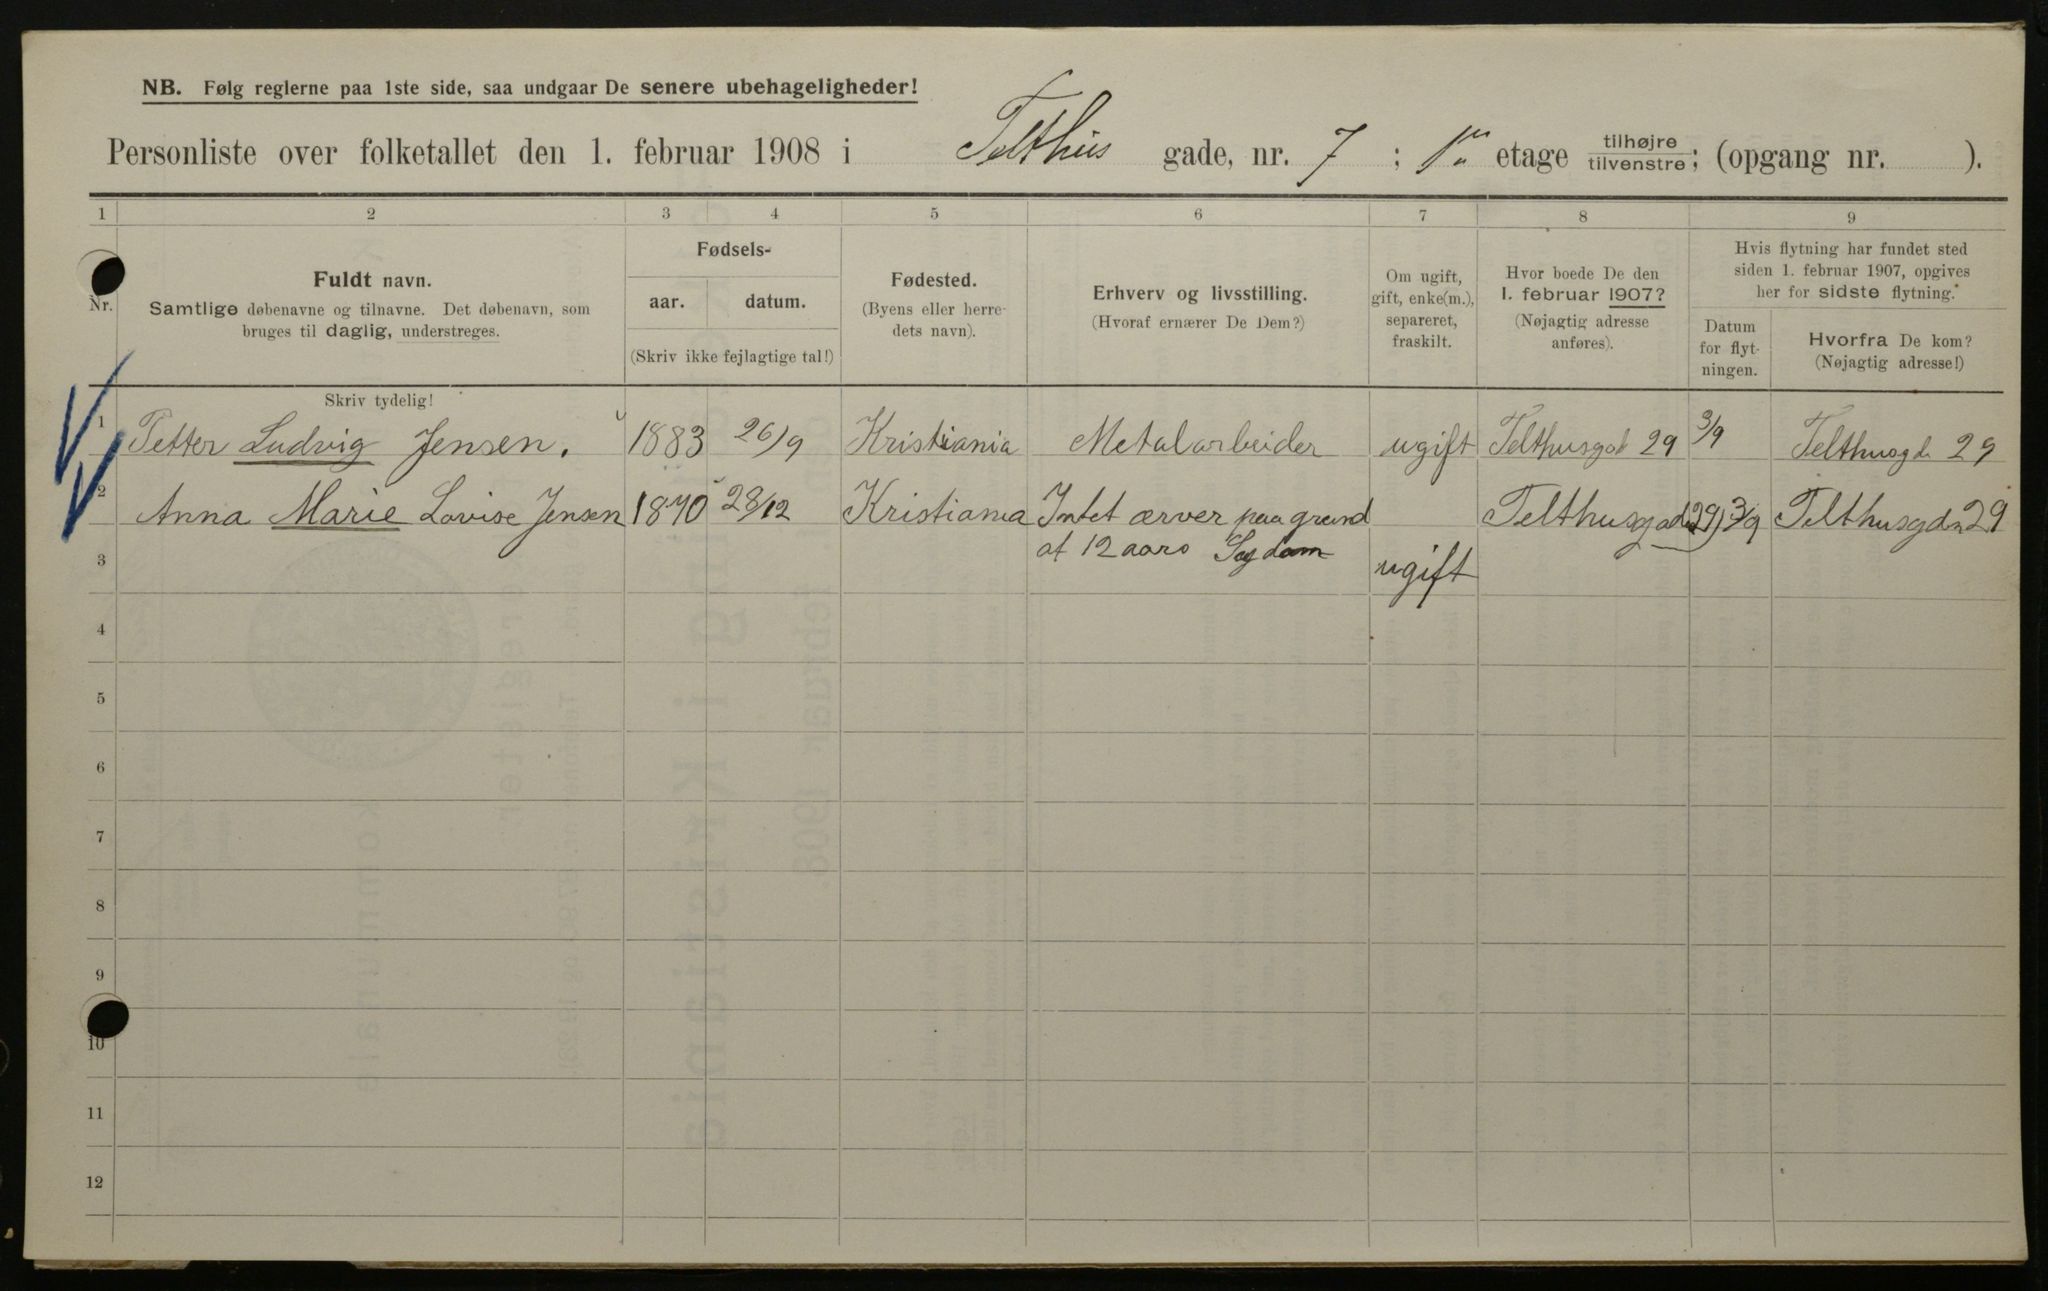 NB. Følg reglerne paa 1ste side, saa undgaar De senere ubehageligheder!
Personliste over folketallet den 1. februar 1908 i Telthus gade, nr. 7; 1ste etage tilhøjre tilvenstre; (opgang nr. ).
1 2 3 4 5 6 7 8 9
Nr.
Fuldt navn.
Samtlige døbenavne og tilnavne. Det døbenavn, som
bruges til daglig, understreges.
Skriv tydelig!
Fødsels-
aar. datum.
(Skriv ikke fejlagtige tal!)
Fødested.
(Byens eller herre-
dets navn).
Erhverv og livsstilling.
(Hvoraf ernærer De Dem?)
Om ugift,
gift, enke(m.),
separeret,
fraskilt.
Hvor boede De den
1. februar 1907?
(Nøjagtig adresse
anføres).
Hvis flytning har fundet sted
siden 1. februar 1907, opgives
her for sidste flytning.
Datum
for flyt-
ningen.
Hvorfra De kom?
(Nøjagtig adresse!)
1 Petter Ludvig Jensen. 1883 26/9 Kristiania Metalarbeider ugift Telthusgad 29 3/9 Telthusgd. 29
2 Anna Marie Lovise Jensen 1870 28/12 Kristiania Intet ærver paa grund Telthusgade 29 3/9 Telthusgdn 29
af 12 aars Sygdom ugift
3
4
5
6
7
8
9
10
11
12